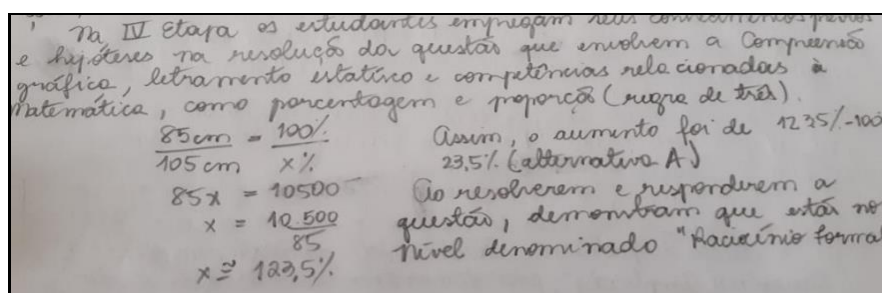 Na IV Etapa os estudantes empregam seus conhecimentos prévios
e hipóteses na resolução da questão que envolvem a Compreensão
gráfica, letramento estatístico e competências relacionadas à
Matemática, como porcentagem e proporção (regra de três).
85cm = 100%
105cm x%
85x = 10500
x = 10.500
85
x ≅ 123,5%
Assim, o aumento foi de 123,5%-100
23,5% (alternativa A)
Ao resolverem e responderem a
questão, demonstram que estão no
Nível denominado "Raciocínio formal